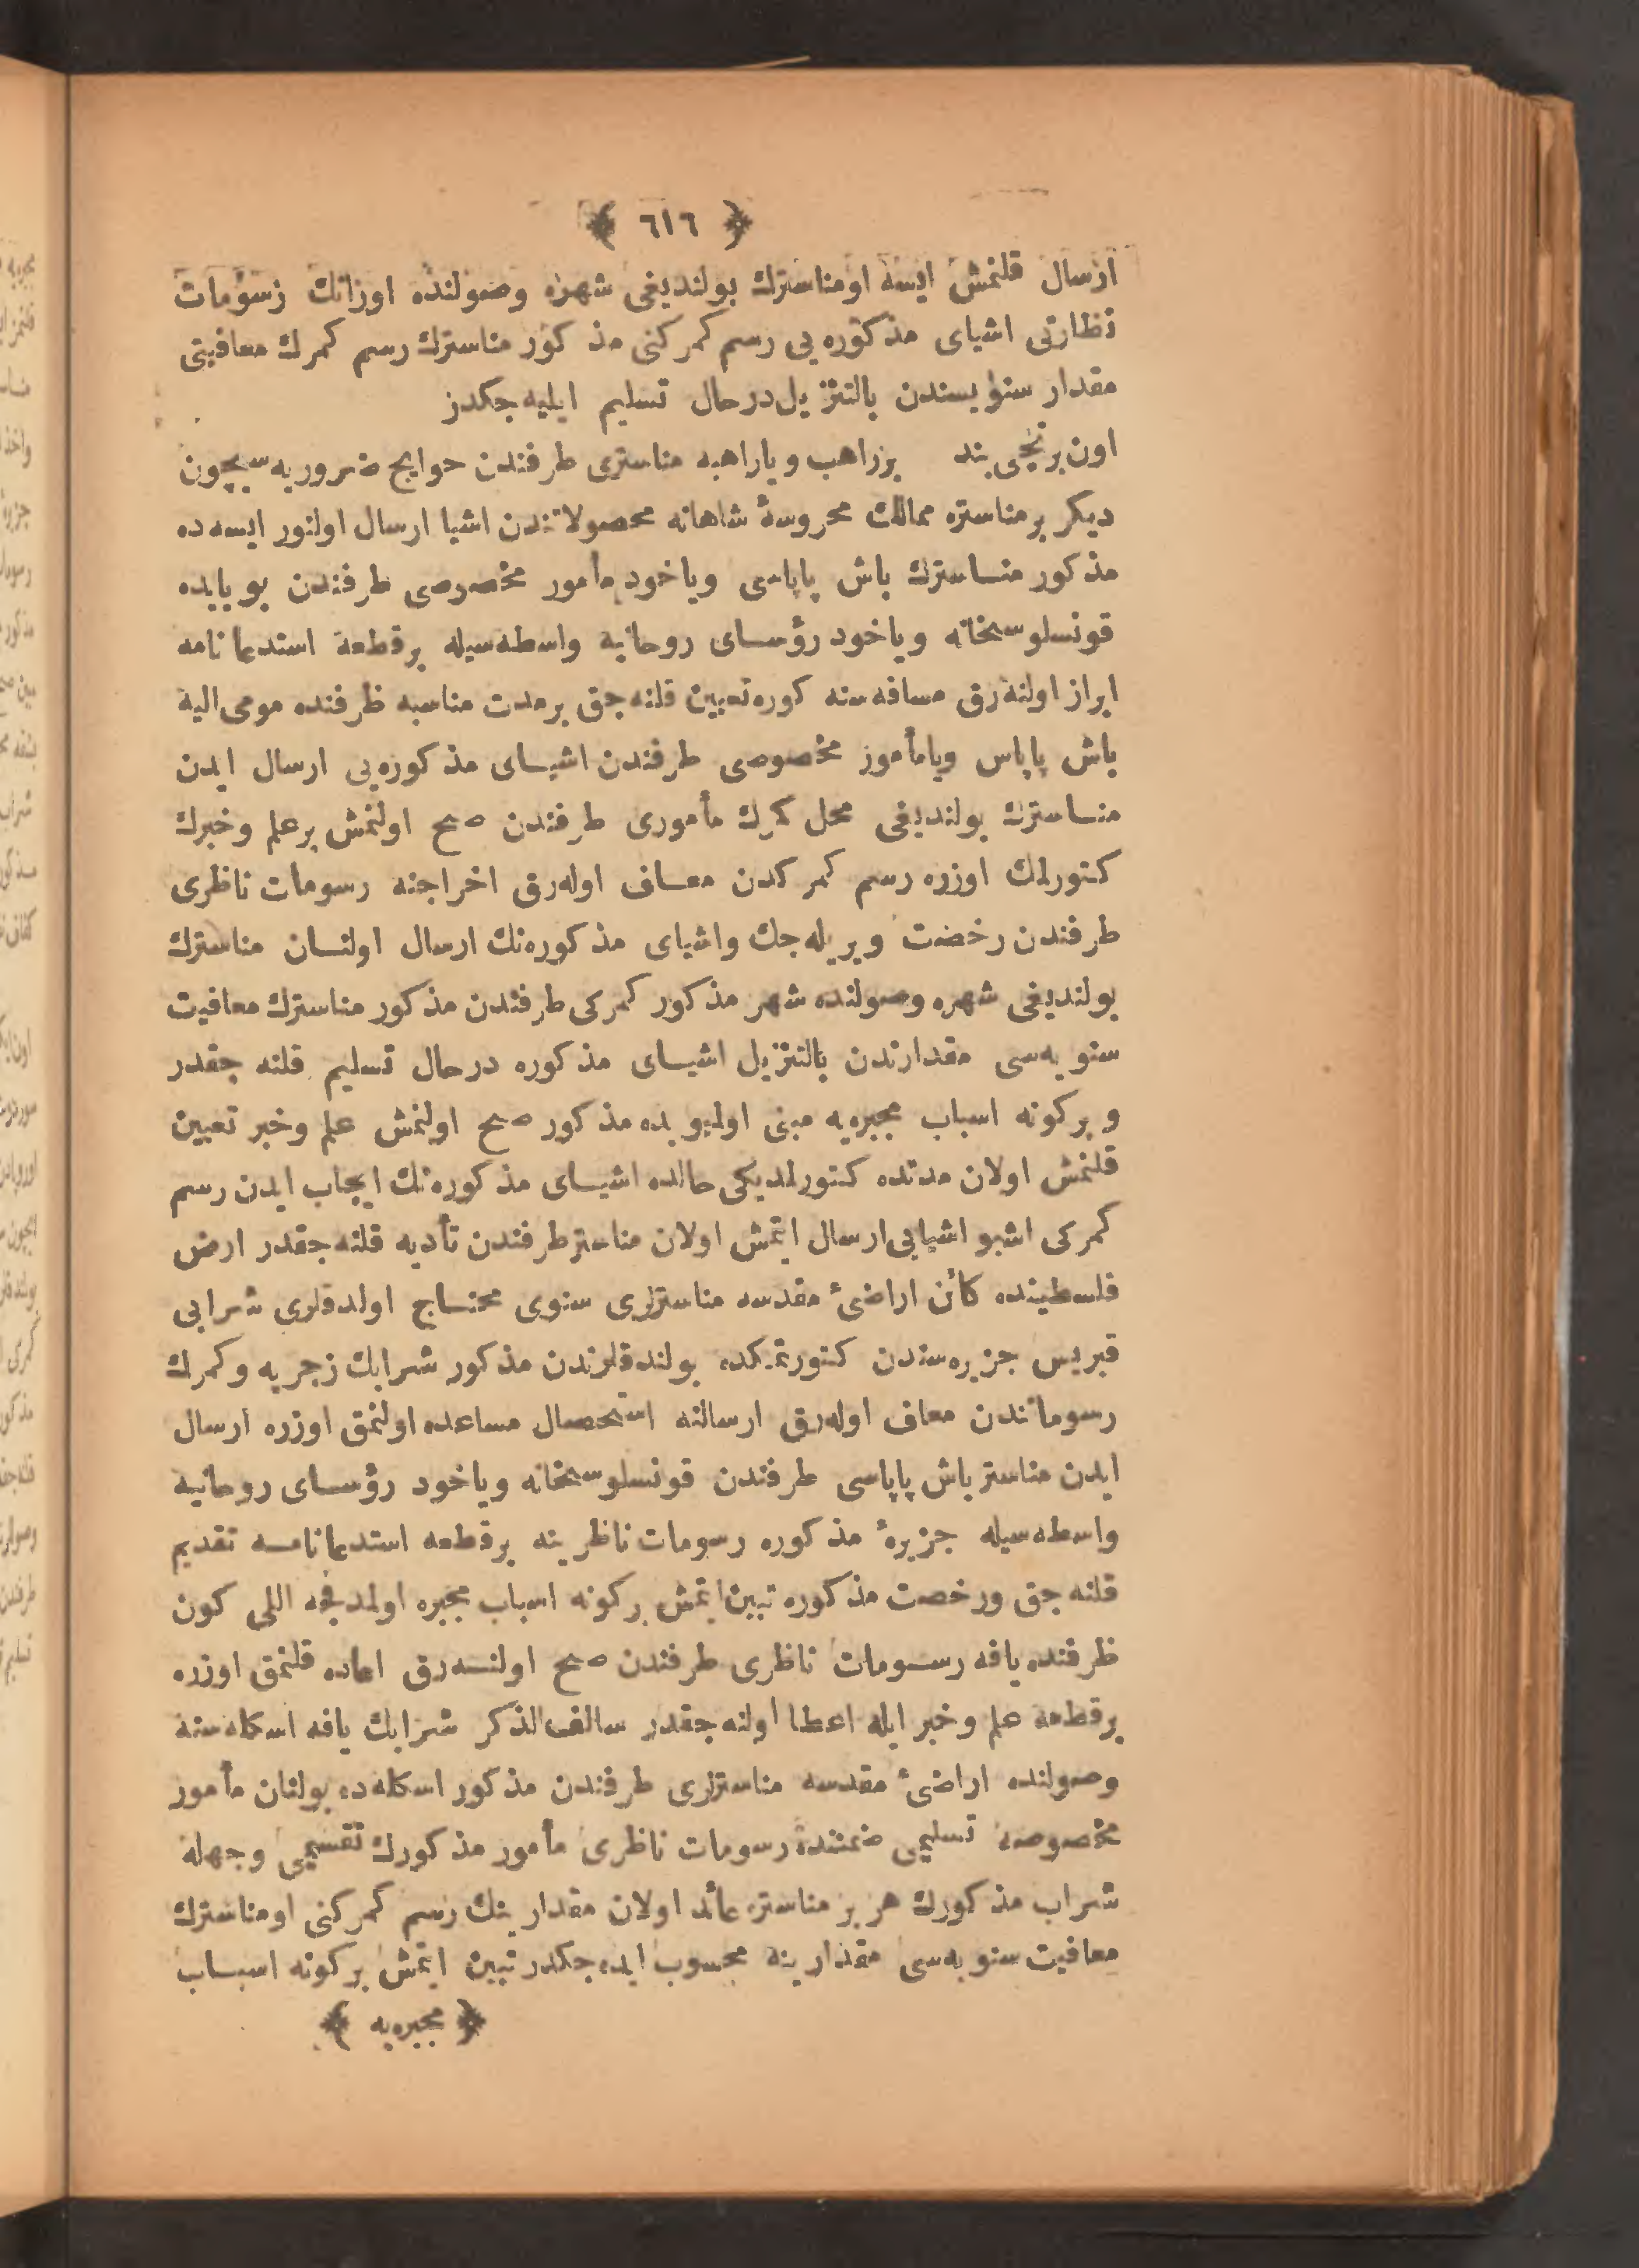 ﴿ ٦١٦ ﴾
ارسال قلنمش ايسه اومناسترك بولنديغى شهره وصولنده اورانك رسومات
نظارتى اشياى مذكوره يى رسم كمركنى مذكور مناسترك رسم كمرك معافيتى
مقدار سنويسندن بالتنزيل درحال تسليم ايليه جكدر
اون برنجى بند برراهب وياراهبه مناسترى طرفندن حوايج ضروريه سيچون
ديكر برمناستره ممالك محروسهٔ شاهانه محصولاتندن اشيا ارسال اولنور ايسه ده
مذكور مناسترك باش پاپاسى وياخود مأمور مخصوصى طرفندن بوبابده
قونسلوسخانه وياخود رؤساى روحانيه واسطه سيله برقطعه استدعانامه
ابراز اولنه رق مسافه سنه كوره تعيين قلنه جق برمدت مناسبه ظرفنده مومى اليه
باش پاپاس ويامأمور مخصوصى طرفندن اشياى مذكوره يى ارسال ايدن
مناسترك بولنديغى محل كمرك مأمورى طرفندن صح اولنمش برعلم وخبرك
كتورلمك اوزره رسم كمركدن معاف اوله رق اخراجنه رسومات ناظرى
طرفندن رخصت ويريله جك واشياى مذكوره نك ارسال اولنان مناسترك
بولنديغى شهره وصولنده شهر مذكور كمركى طرفندن مذكور مناسترك معافيت
سنويه سى مقدارندن بالتنزيل اشياى مذكوره درحال تسليم قلنه جقدر
و بركونه اسباب مجبره يه مبنى اوليوبده مذكور صح اولنمش علم وخبر تعيين
قلنمش اولان مدتده كتورلمديكى حالده اشياى مذكوره نك ايجاب ايدن رسم
كمركى اشبو اشيايى ارسال ايتمش اولان مناستر طرفندن تأديه قلنه جقدر ارض
فلسطينده كائن اراضئ مقدسه مناسترلرى سنوى محتاج اولدقلرى شرابى
قبريس جزيره سندن كتورتمكده بولندقلرندن مذكور شرابك زجريه وكمرك
رسوماتندن معاف اوله رق ارسالنه استحصال مساعده اولنمق اوزره ارسال
ايدن مناستر باش پاپاسى طرفندن قونسلوسخانه وياخود رؤساى روحانيه
واسطه سيله جزيرهٔ مذكوره رسومات ناظرينه برقطعه استدعانامه تقديم
قلنه جق ورخصت مذكوره تبين ايتمش بركونه اسباب مجبره اولمدقجه اللى كون
ظرفنده يافه رسومات ناظرى طرفندن صح اولنه رق اعاده قلنمق اوزره
برقطعه علم وخبر ايله اعطا اولنه جقدر سالف الذكر شرابك يافه اسكله سنه
وصولنده اراضئ مقدسه مناسترلرى طرفندن مذكور اسكله ده بولنان مأمور
مخصوصه تسليمى ضمننده رسومات ناظرى مأمور مذكورك تقسيمى وجهله
شراب مذكورك هر بر مناستره عائد اولان مقدارينك رسم كمركنى اومناسترك
معافيت سنويه سى مقدارينه محسوب ايده جكدر تبين ايتمش بركونه اسباب
﴿ مجبره يه ﴾